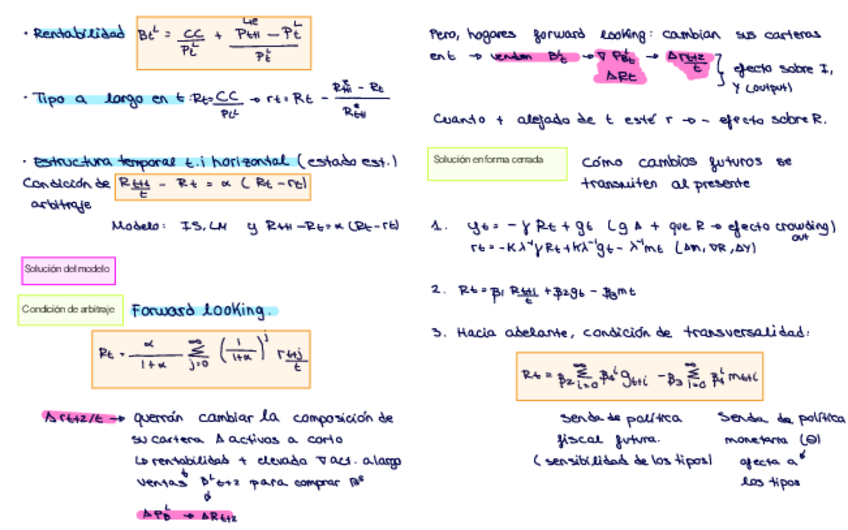 · Rentabilidad Bt^L = CC/Pt^L + (Pt+1^Le − Pt^L)/Pt^L
· Tipo a largo en t: Rt = CC/Pt^L → rt = Rt − (Rt+1^e − Rt)/Rt+1^e
· Estructura temporal t.i horizontal (estado est.)
Condición de arbitraje Rt+1/t − Rt = α (Rt − rt)
Modelo: IS, LM y Rt+1 − Rt = α (Rt − rt)
Solución del modelo
Condición de arbitraje Forward looking.
Rt = α/(1+α) ∑_{j=0}^{∞} (1/(1+α))^j rt+j/t
Δ rt+2/t → querrán cambiar la composición de
su cartera Δ activos a corto
↳ rentabilidad + elevada ∇ act. a largo
ventas B^L t+2 para comprar B^s
Δ P_B^L → Δ Rt+2
Pero, hogares forward looking: cambian sus carteras
en t → venden Bt^L → ∇ P_Bt^L → Δ rt+2/t
Δ Rt
efecto sobre I,
Y (output)
Cuanto + alejado de t esté r → − efecto sobre R.
Solución en forma cerrada
Cómo cambios futuros se
transmiten al presente
1. yt = − γ Rt + gt (g Δ + que R → efecto crowding out)
rt = −Kλ⁻¹γRt + Kλ⁻¹gt − λ⁻¹mt (Δm, ∇R, ΔY)
2. Rt = β1 Rt+1/t + β2gt − β3mt
3. Hacia adelante, condición de transversalidad:
Rt = β2 ∑_{i=0}^{∞} β1^i gt+i − β3 ∑_{i=0}^{∞} β1^i mt+i
Senda de política
fiscal futura.
(sensibilidad de los tipos)
Senda de política
monetaria (⊖)
afecta a
los tipos